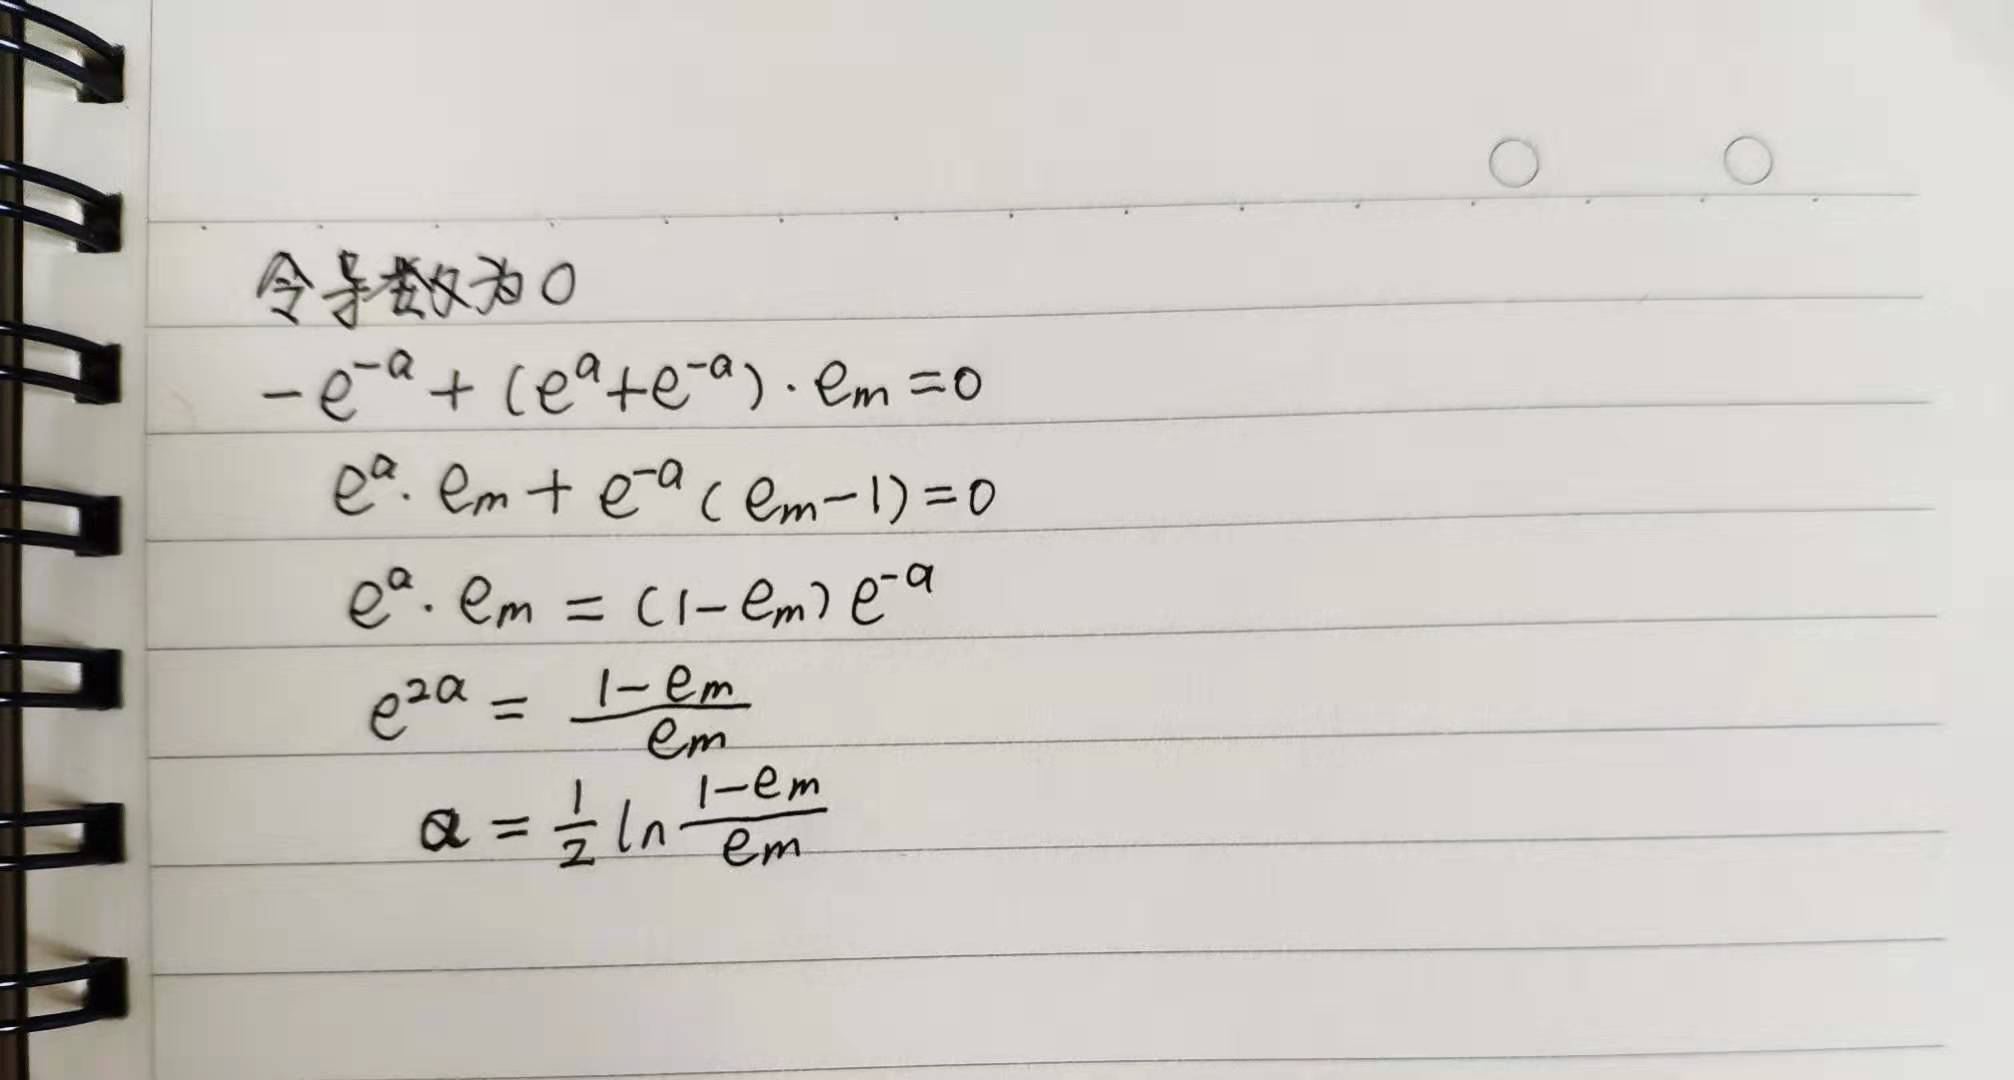 令导数为0
-e^{-a} + (e^a + e^{-a}) · e_m = 0
e^a · e_m + e^{-a} (e_m - 1) = 0
e^a · e_m = (1 - e_m) e^{-a}
e^{2a} = \frac{1 - e_m}{e_m}
a = \frac{1}{2} ln \frac{1 - e_m}{e_m}